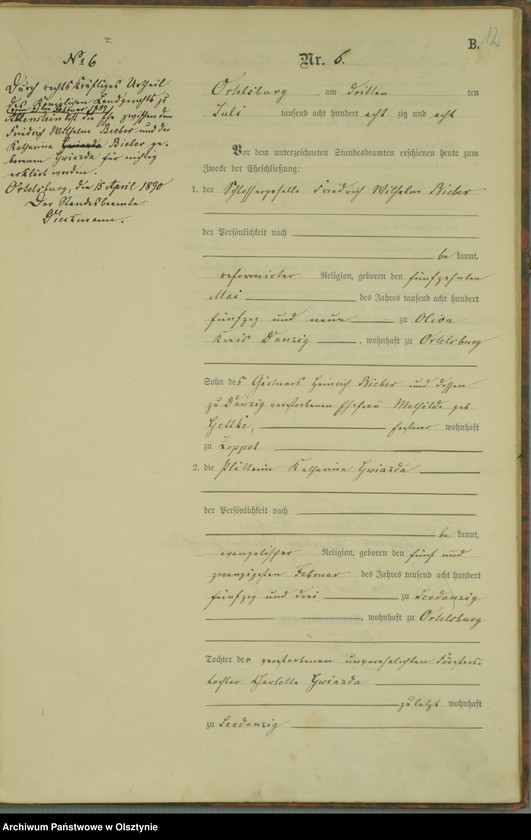 12
B.
Nr. 6.
Ortelsburg am dritten ten
Juli tausend acht hundert acht zig und acht
Vor dem unterzeichneten Standesbeamten erschienen heute zum
Zwecke der Eheschließung:
1. der Schlossergeselle Friedrich Wilhelm Bieber
der Persönlichkeit nach
be kannt,
reformirter Religion, geboren den fünfzehnten
Mai des Jahres tausend acht hundert
fünfzig und neun zu Oliva
Kreis Danzig, wohnhaft zu Ortelsburg
Sohn des Gärtners Heinrich Bieber und dessen
zu Danzig verstorbenen Ehefrau Mathilde geb.
wohnhaft
zu Zoppot
2. die Plätterin Katharina Gwiazda
der Persönlichkeit nach
be kannt,
evangelischer Religion, geboren den fünf und
zwanzigsten Februar des Jahres tausend acht hundert
fünfzig und drei zu Seedanzig
, wohnhaft zu Ortelsburg
Tochter der verstorbenen unverehelichten
tochter Charlotte Gwiazda
zuletzt wohnhaft
zu Seedanzig
No 6
Durch rechtskräftiges Urtheil
des Königlichen Landgerichts zu
Allenstein ist die Ehe zwischen dem
Friedrich Wilhelm Bieber und der
Katharina Gwiazda Bieber ge-
borenen Gwiazda für nichtig
erklärt worden.
Ortelsburg, den 15 April 1890
Der Standesbeamte.
Archiwum Państwowe w Olsztynie